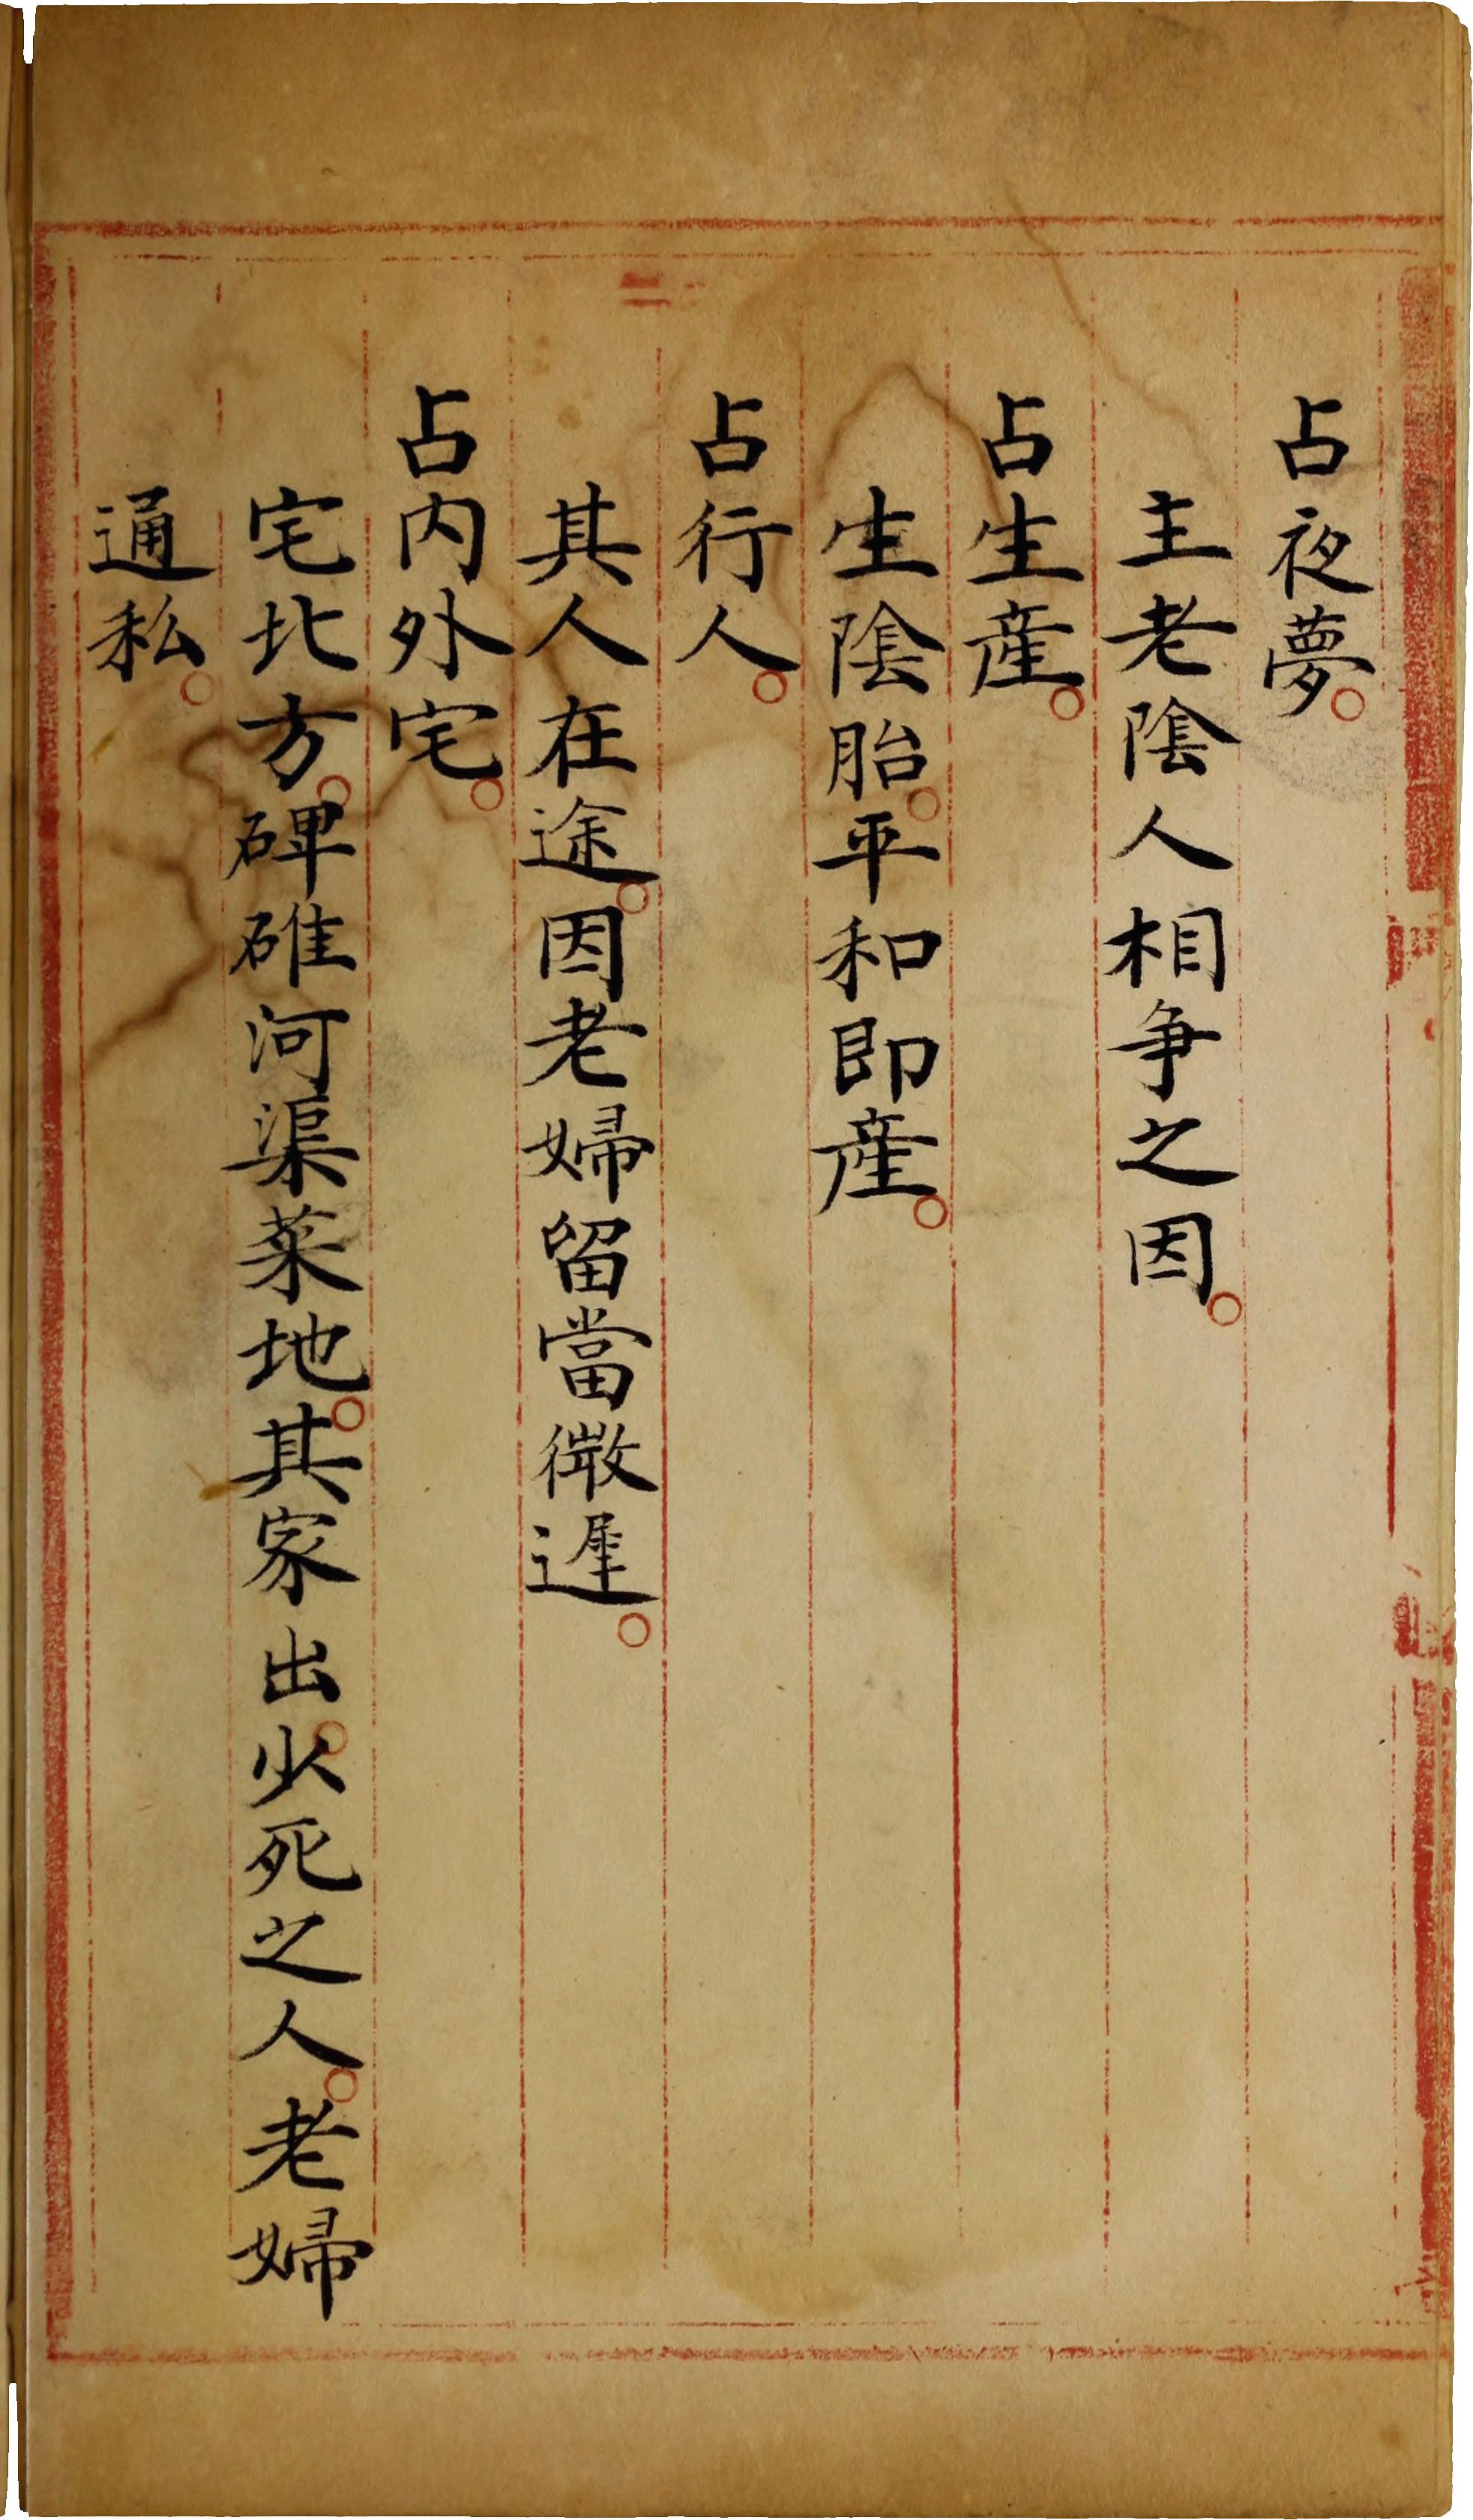 占夜夢。
主老陰人相爭之因。
占生産。
生陰胎。平和即産。
占行人。
其人在途。因老婦留當微遲。
占内外宅。
宅北方。碑碓河渠菜地。其家出。少死之人。老婦
通私。